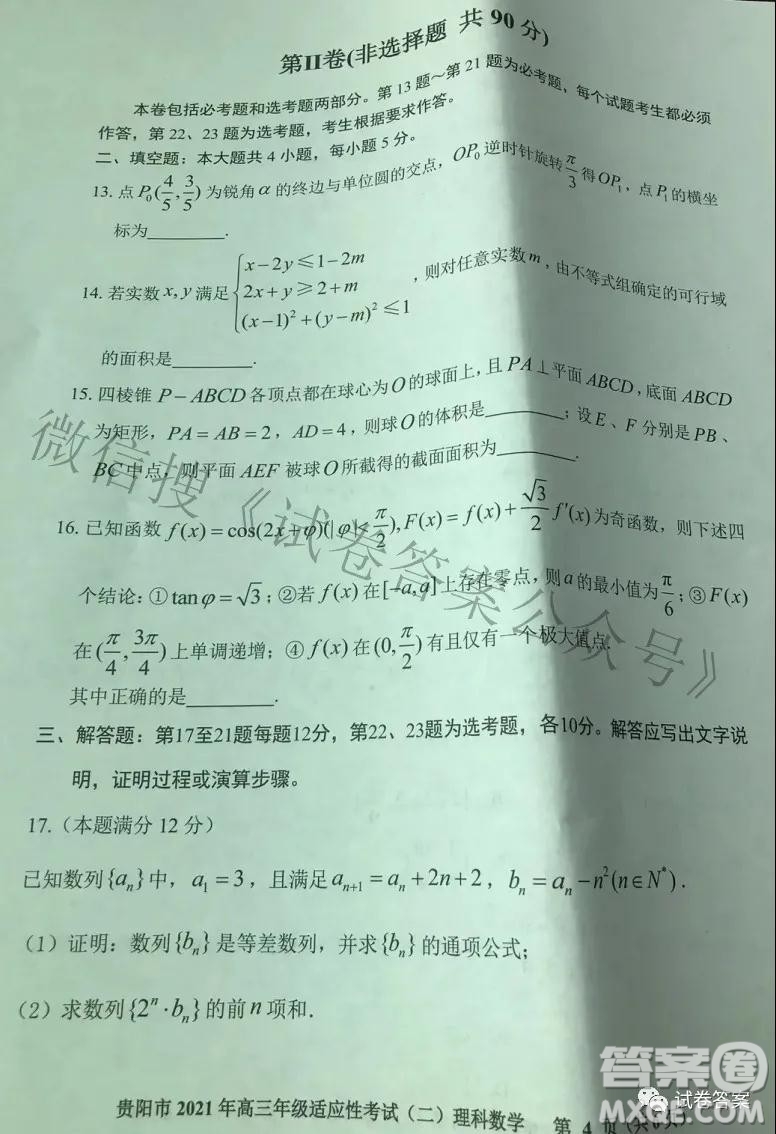 第II卷(非选择题 共 90 分)
本卷包括必考题和选考题两部分。第 13 题～第 21 题为必考题，每个试题考生都必须
作答，第 22、23 题为选考题，考生根据要求作答。
二、填空题：本大题共 4 小题，每小题 5 分。
13. 点 P₀(4/5, 3/5) 为锐角 α 的终边与单位圆的交点，OP₀ 逆时针旋转 π/3 得 OP₁，点 P₁ 的横坐
标为________.
14. 若实数 x, y 满足 { x−2y ≤ 1−2m
2x+y ≥ 2+m
(x−1)²+(y−m)² ≤ 1 ，则对任意实数 m，由不等式组确定的可行域
的面积是________.
15. 四棱锥 P−ABCD 各顶点都在球心为 O 的球面上，且 PA⊥平面 ABCD，底面 ABCD
为矩形，PA=AB=2，AD=4，则球 O 的体积是________；设 E、F 分别是 PB、
BC 中点，则平面 AEF 被球 O 所截得的截面面积为________.
16. 已知函数 f(x)=cos(2x+φ)(|φ|<π/2), F(x)=f(x)+√3/2 f′(x) 为奇函数，则下述四
个结论：① tanφ=√3；②若 f(x) 在 [−a,a] 上存在零点，则 a 的最小值为 π/6；③ F(x)
在 (π/4, 3π/4) 上单调递增；④ f(x) 在 (0, π/2) 有且仅有一个极大值点.
其中正确的是________.
三、解答题：第17至21题每题12分，第22、23题为选考题，各10分。解答应写出文字说
明，证明过程或演算步骤。
17.（本题满分 12 分）
已知数列{aₙ}中，a₁=3，且满足 aₙ₊₁=aₙ+2n+2，bₙ=aₙ−n²(n∈N*).
（1）证明：数列{bₙ}是等差数列，并求{bₙ}的通项公式；
（2）求数列{2ⁿ·bₙ}的前 n 项和.
贵阳市 2021 年高三年级适应性考试（二）理科数学 第 4 页
微信搜《试卷答案公众号》
答案圈
试卷答案
MXQE.COM